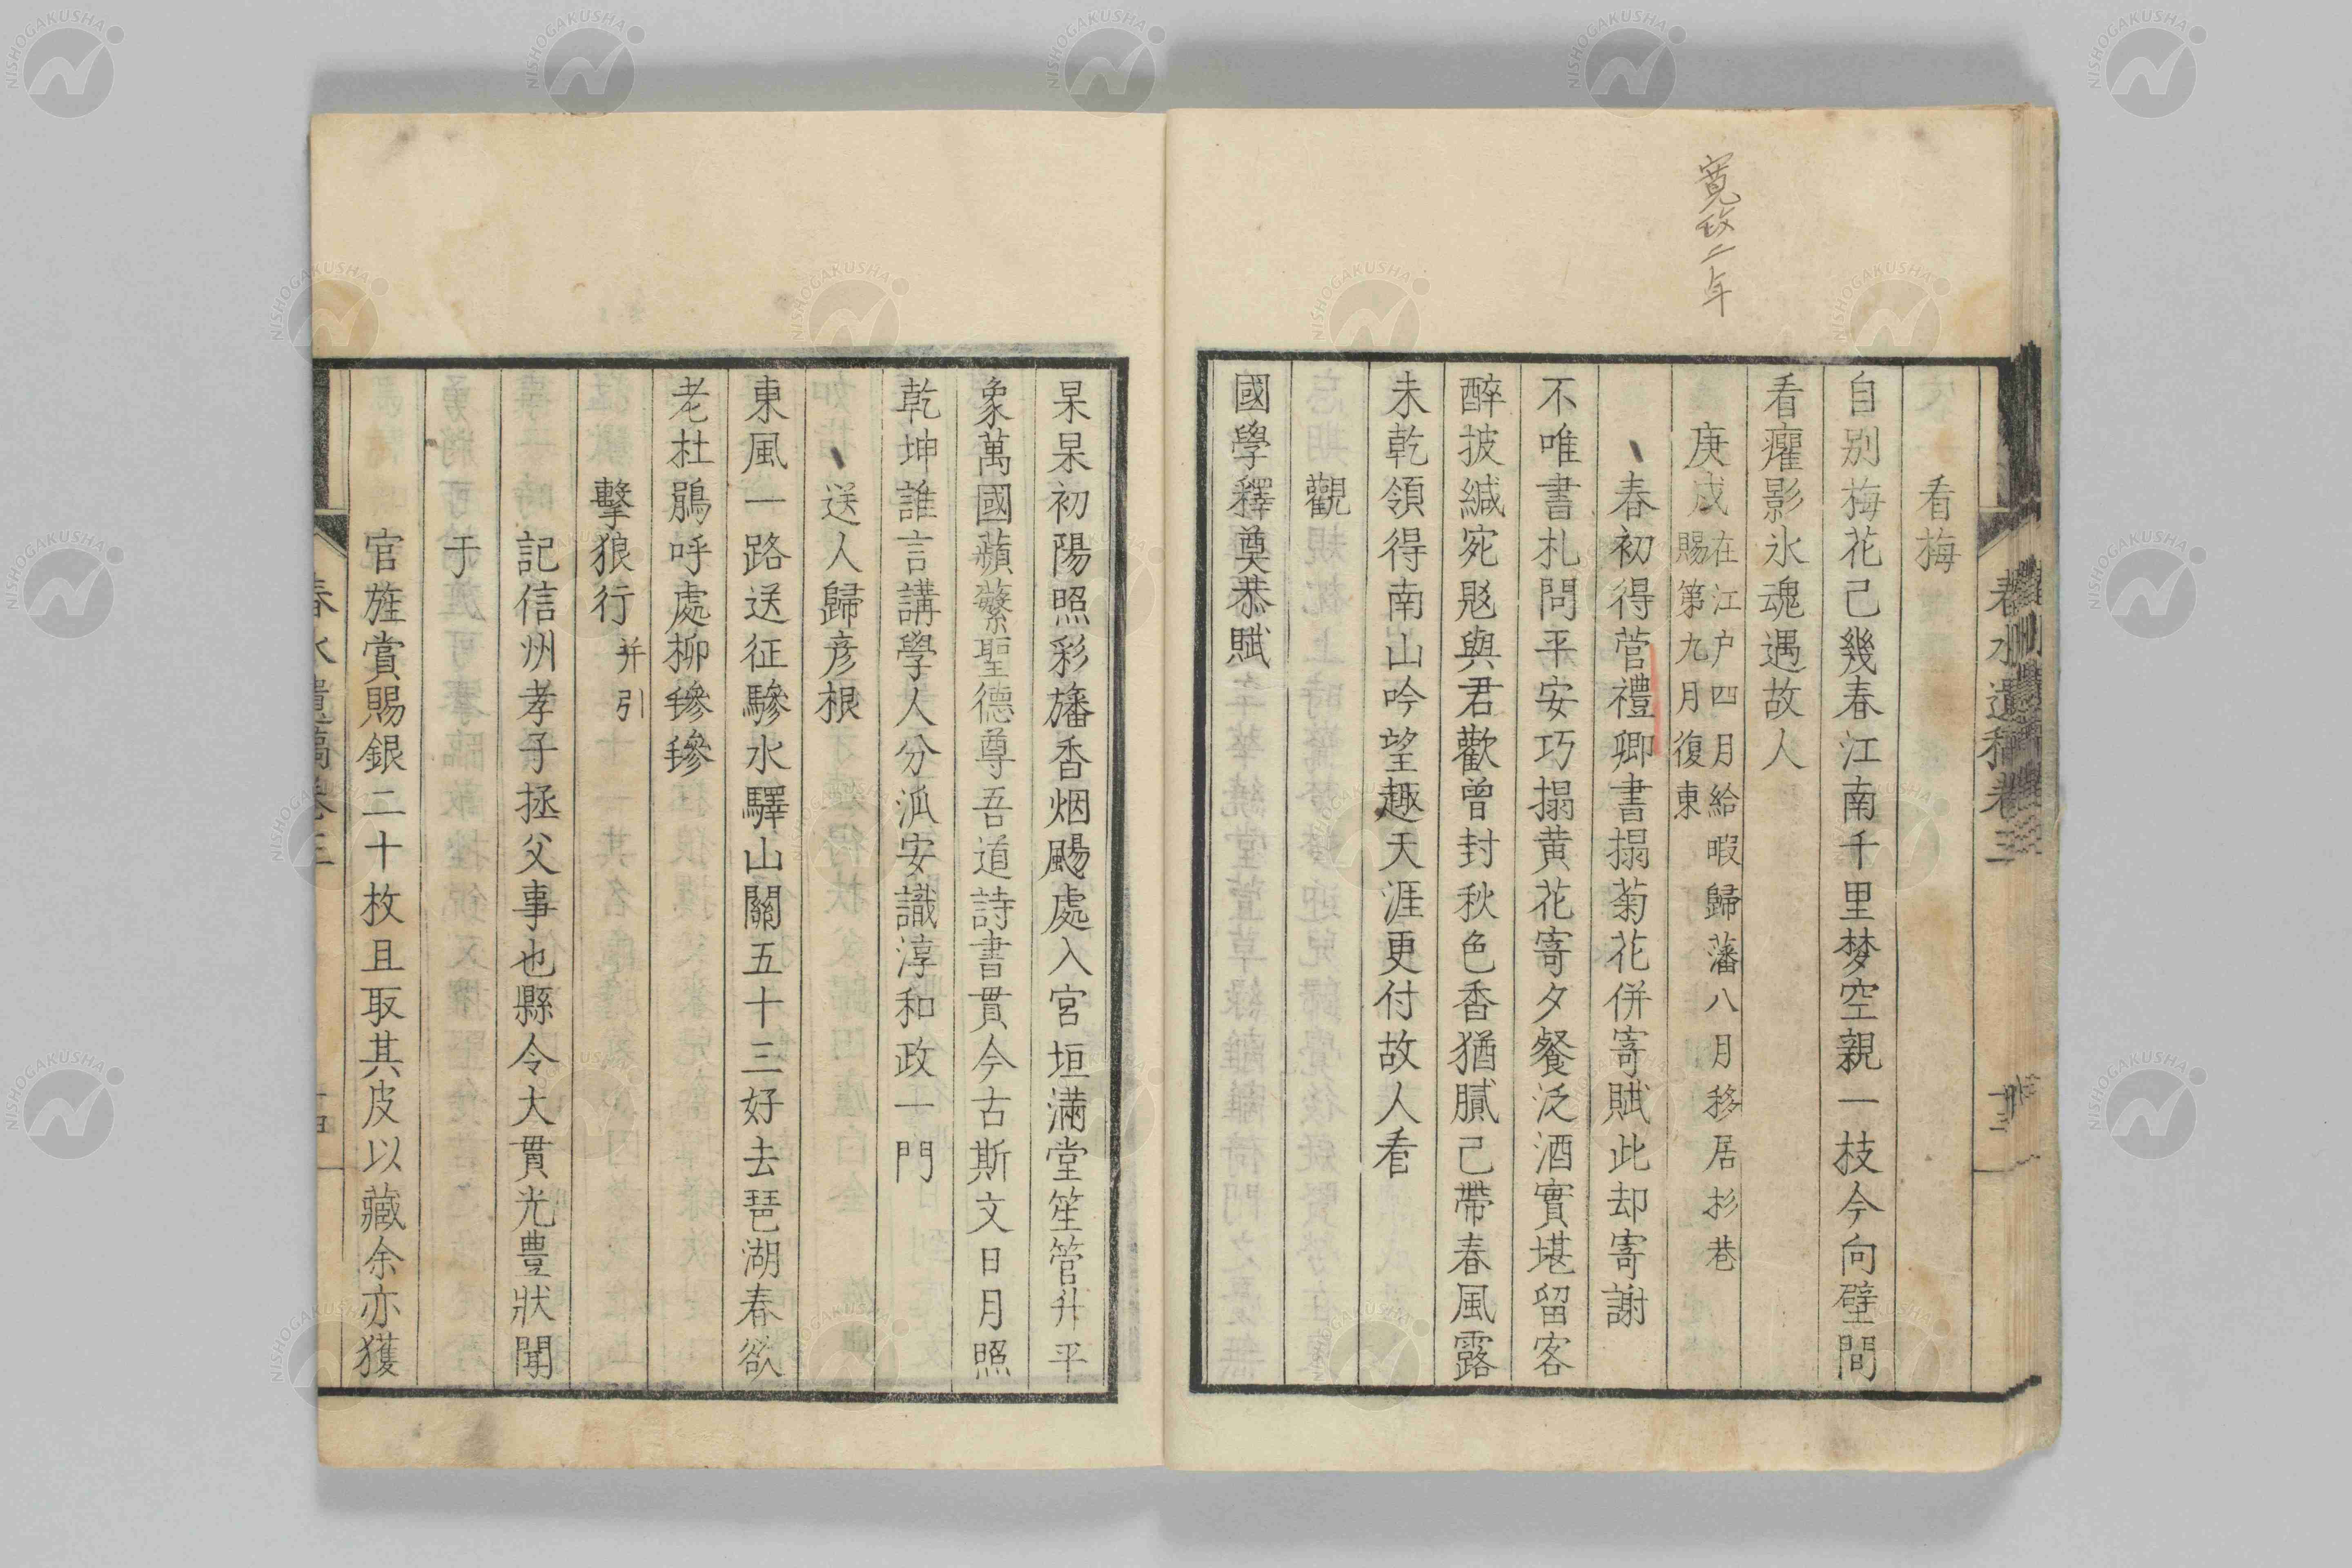 寛政二年
春水遺稿卷三
看梅
自別梅花已幾春江南千里梦空親一枝今向壁間
看癯影氷魂遇故人
庚戌在江戸四月給暇歸藩八月移居杉巷
賜第九月復東
春初得菅禮卿書搨菊花併寄賦此却寄謝
不唯書札問平安巧搨黄花寄夕餐泛酒實堪留客
醉披緘宛兠與君歡曽封秋色香猶膩已帶春風露
未乾領得南山吟望趣天涯更付故人看
觀
國學釋奠恭賦
杲杲初陽照彩旛香烟颺處入宮垣滿堂笙管升平
象萬國蘋蘩聖德尊吾道詩書貫今古斯文日月照
乾坤誰言講學人分派安識淳和政一門
送人歸彦根
東風一路送征驂水驛山關五十三好去琶湖春欲
老杜鵑呼處柳毿毿
擊狼行并引
記信州孝子拯父事也縣令大貫光豊狀聞
于
官旌賞賜銀二十枚且取其皮以藏余亦獲
春水遺稿卷三